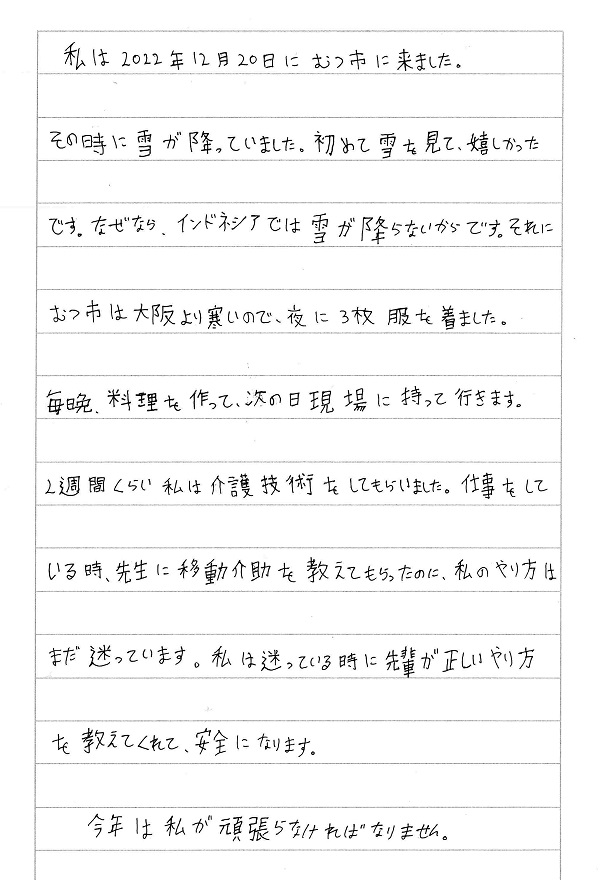 私は2022年12月20日にむつ市に来ました。
その時に雪が降っていました。初めて雪を見て、嬉しかった
です。なぜなら、インドネシアでは雪が降らないからです。それに
むつ市は大阪より寒いので、夜に3枚服を着ました。
毎晩、料理を作って、次の日現場に持って行きます。
2週間くらい私は介護技術をしてもらいました。仕事をして
いる時、先生に移動介助を教えてもらったのに、私のやり方は
まだ迷っています。私は迷っている時に先輩が正しいやり方
を教えてくれて、安全になります。
今年は私が頑張らなければなりません。